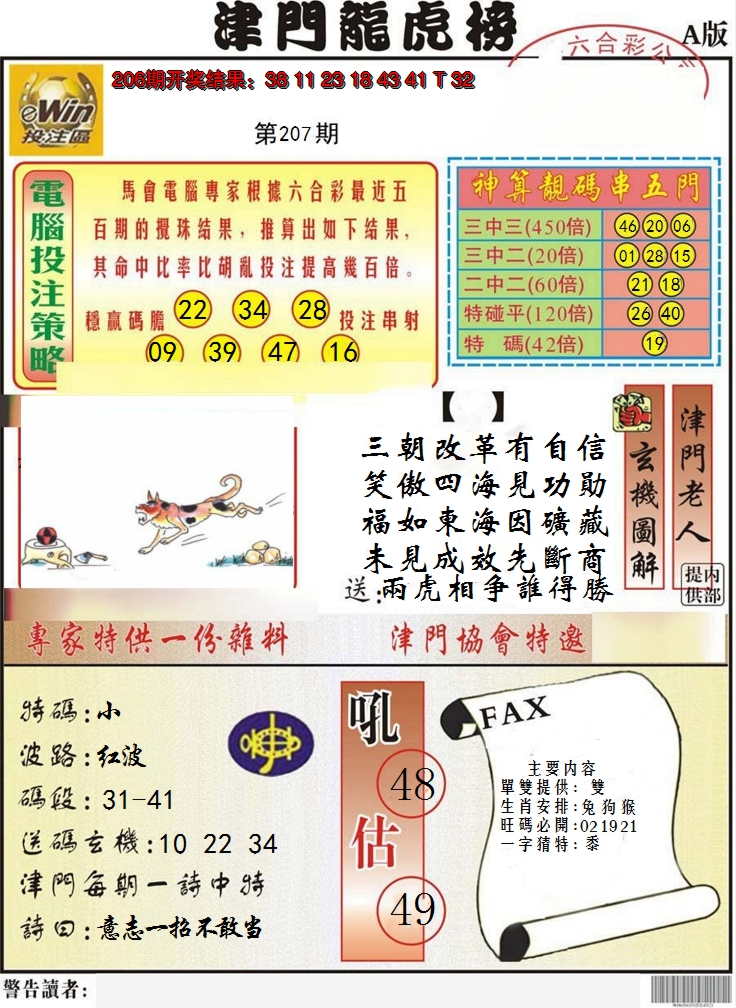 津門龍虎榜
A版
六合彩公
206期开奖结果：38 11 23 18 43 41 T 32
eWin
投注區
第207期
電腦投注策略
馬會電腦專家根據六合彩最近五
百期的攪珠结果，推算出如下结果，
其命中比率比胡亂投注提高幾百倍。
穩贏碼膽 22 34 28 投注串射
09 39 47 16
神算靚碼串五門
三中三(450倍) 46 20 06
三中二(20倍) 01 28 15
二中二(60倍) 21 18
特碰平(120倍) 26 40
特 碼(42倍) 19
【 】
三朝改革有自信
笑傲四海見功勛
福如東海因礦藏
未見成效先斷商
送:兩虎相争誰得勝
玄機圖解
津門老人
内部提供
專家特供一份雜料
津門協會特邀
特碼:小
波路:红波
碼段:31-41
送碼玄機:10 22 34
津門每期一詩中特
詩曰:意志一招不敢当
吼
48
估
49
FAX
主要内容
單雙提供: 雙
生肖安排:兔狗猴
旺碼必開:021921
一字猜特:黍
警告讀者: